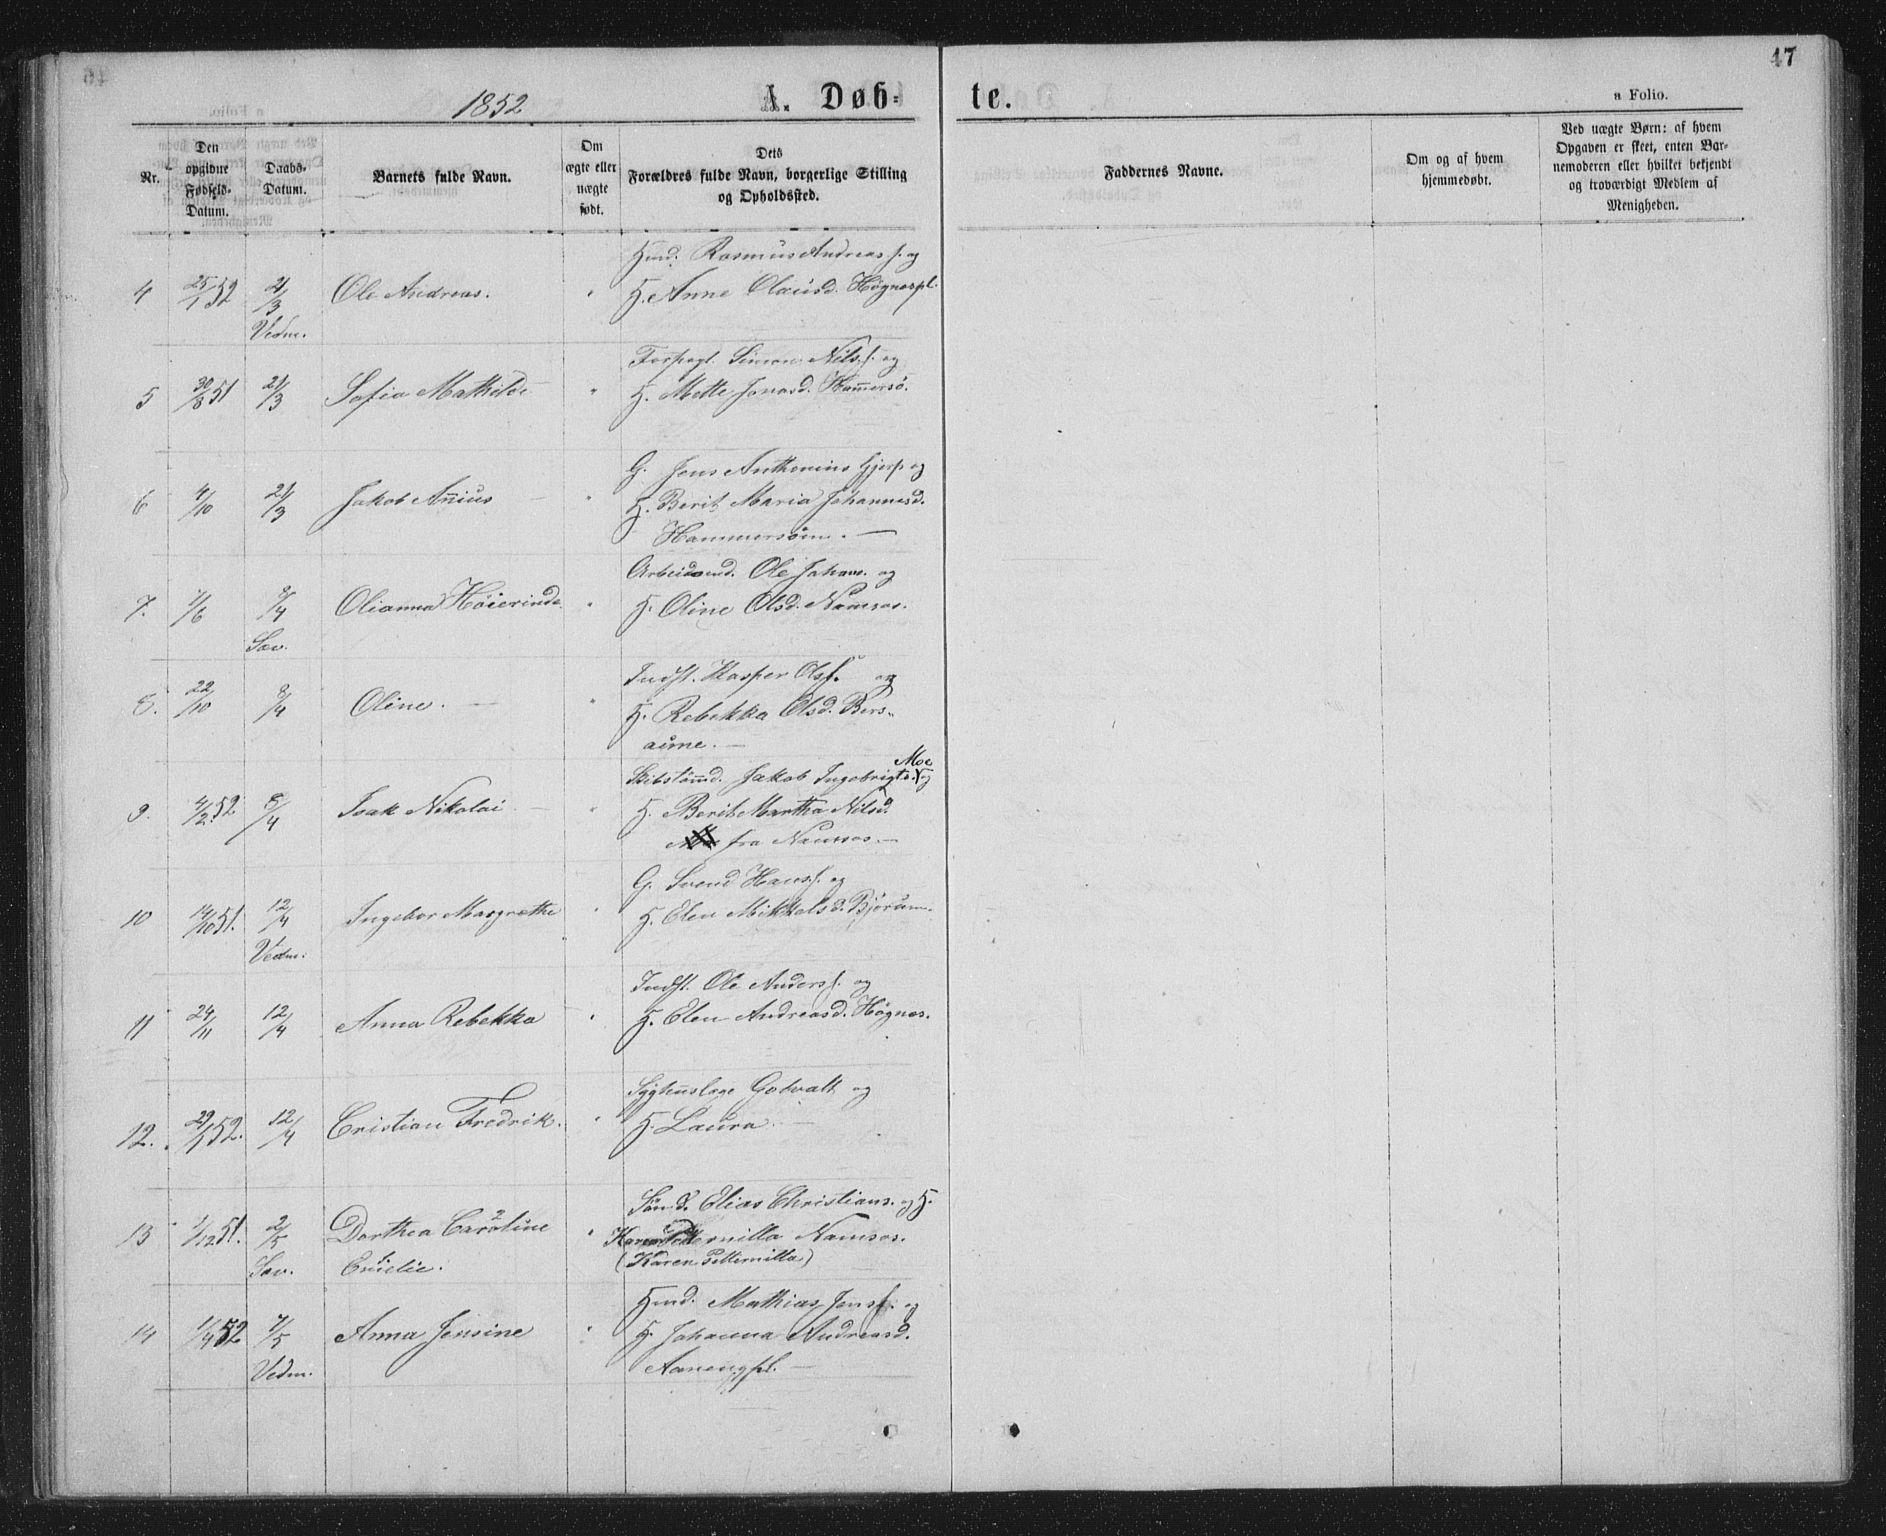 17
1852
A. Døb=
te.
a Folio.
Nr.
Den
opgivne
Fødsels-
Datum.
Daabs-
Datum.
Barnets fulde Navn.
Om
ægte eller
uægte
født.
Dets
Forældres fulde Navn, borgerlige Stilling
og Opholdssted.
Faddernes Navne.
Om og af hvem
hjemmedøbt.
Ved uægte Børn: af hvem
Opgaven er skeet, enten Bar-
nemoderen eller hvilket bekjendt
og troværdigt Medlem af
Menigheden.
Hmd. Rasmus Andreas s. og
4 25/1 52 21/3 Ole Andreas. " H. Anne Olausd. Høgnespl.
Vedm.
Forpagt. Simon Nilss. og
5 30/8 51 21/3 Sofia Mathilde " H. Mette Jonasd. Ham̅ersø.
G. Jens Anthonius Hjerp og
6 4/10 21/3 Jakob An̅ius — " H. Berit Maria Johannesd.
Hammersøen. —
Arbeidsmd. Ole Johans. og
7. 7/6 8/4 Olianna Høierinde " H. Oline Olsd. Namsos.
Sav.
Indst. Kasper Olss. og
8. 22/10 8/4 Oline. — " H. Rebekka Olsd. Bers-
aune. —
Moe
Skibstøm̅d. Jakob Ingebrigts. og
9. 4/2 52 8/4 Isak Nikolai — " H. Berit Martha Nilsd.
fra Namsos. —
G. Svend Hanss. og
10 14/10 51. 12/4 Ingebor Margrethe " H. Elen Mikkelsd. Bjørum.
Vedm.
Indst. Ole Anderss. og
11 24/11 12/4 Anna Rebekka — " H. Elen Andreasd. Høgnes.
Sygehuslæge Gotvalt og
12. 29/1 52. 12/4 Cristian Fredrik. " H. Laura —
Søm̅d. Elias Christians. og H.
13 1/12 51. 2/5 Dorthea Caroline " Karen Petternilla Namsos.
Sav. (Karen Petternilla)
Hmd. Mathias Jenss. og
14 1/4 52 7/5 Anna Jensine " H. Johanna Andreasd.
Vedm. Aanengpl. —